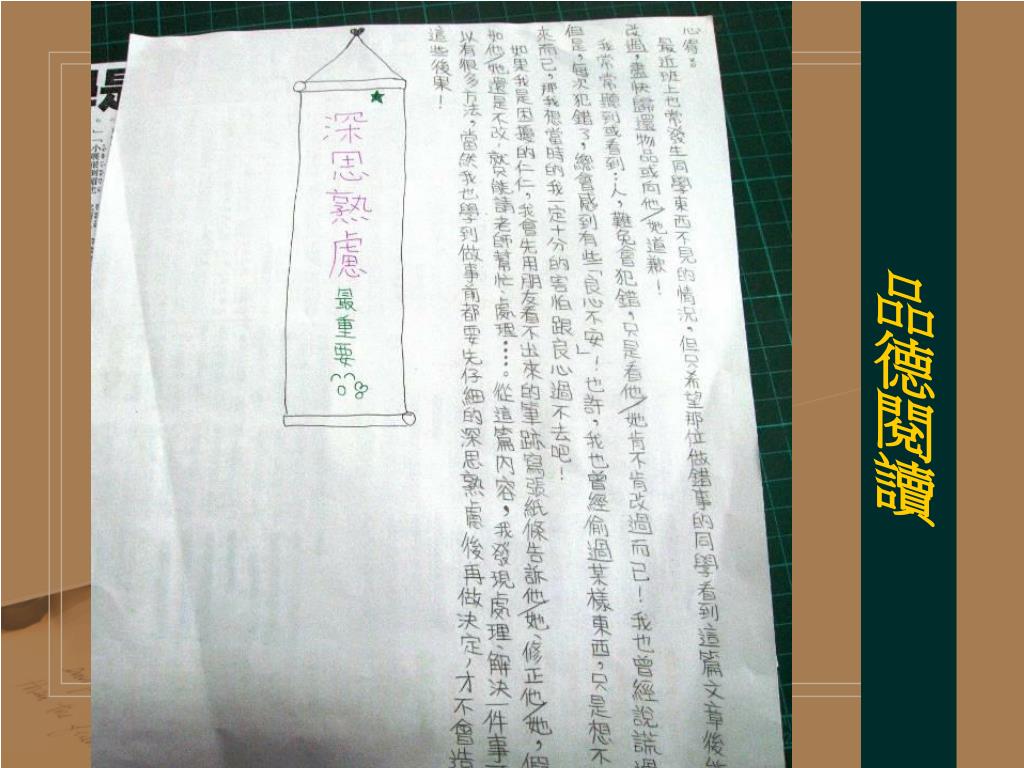 品德閱讀
心得：
最近班上也常發生同學東西不見的情況，但只希望那位做錯事的同學看到這篇文章後能
改過，盡快歸還物品或向他/她道歉！
我常常聽到或看到：人，難免會犯錯，只是看他/她肯不肯改過而已！我也曾經說謊過
但是，每次犯錯了，總會感到有些「良心不安」！也許，我也曾經偷過某樣東西，只是想不
來而已，那我想當時的我一定十分的害怕跟良心過不去吧！
如果我是困擾的仁仁，我會先用朋友看不出來的筆跡寫張紙條告訴他/她、修正他/她，假
如他/她還是不改，就能請老師幫忙、處理……。從這篇內容，我發現處理、解決一件事
以有很多方法，當然我也學到做事前都要先仔細的深思熟慮後再做決定，才不會造
這些後果！
深思熟慮最重要